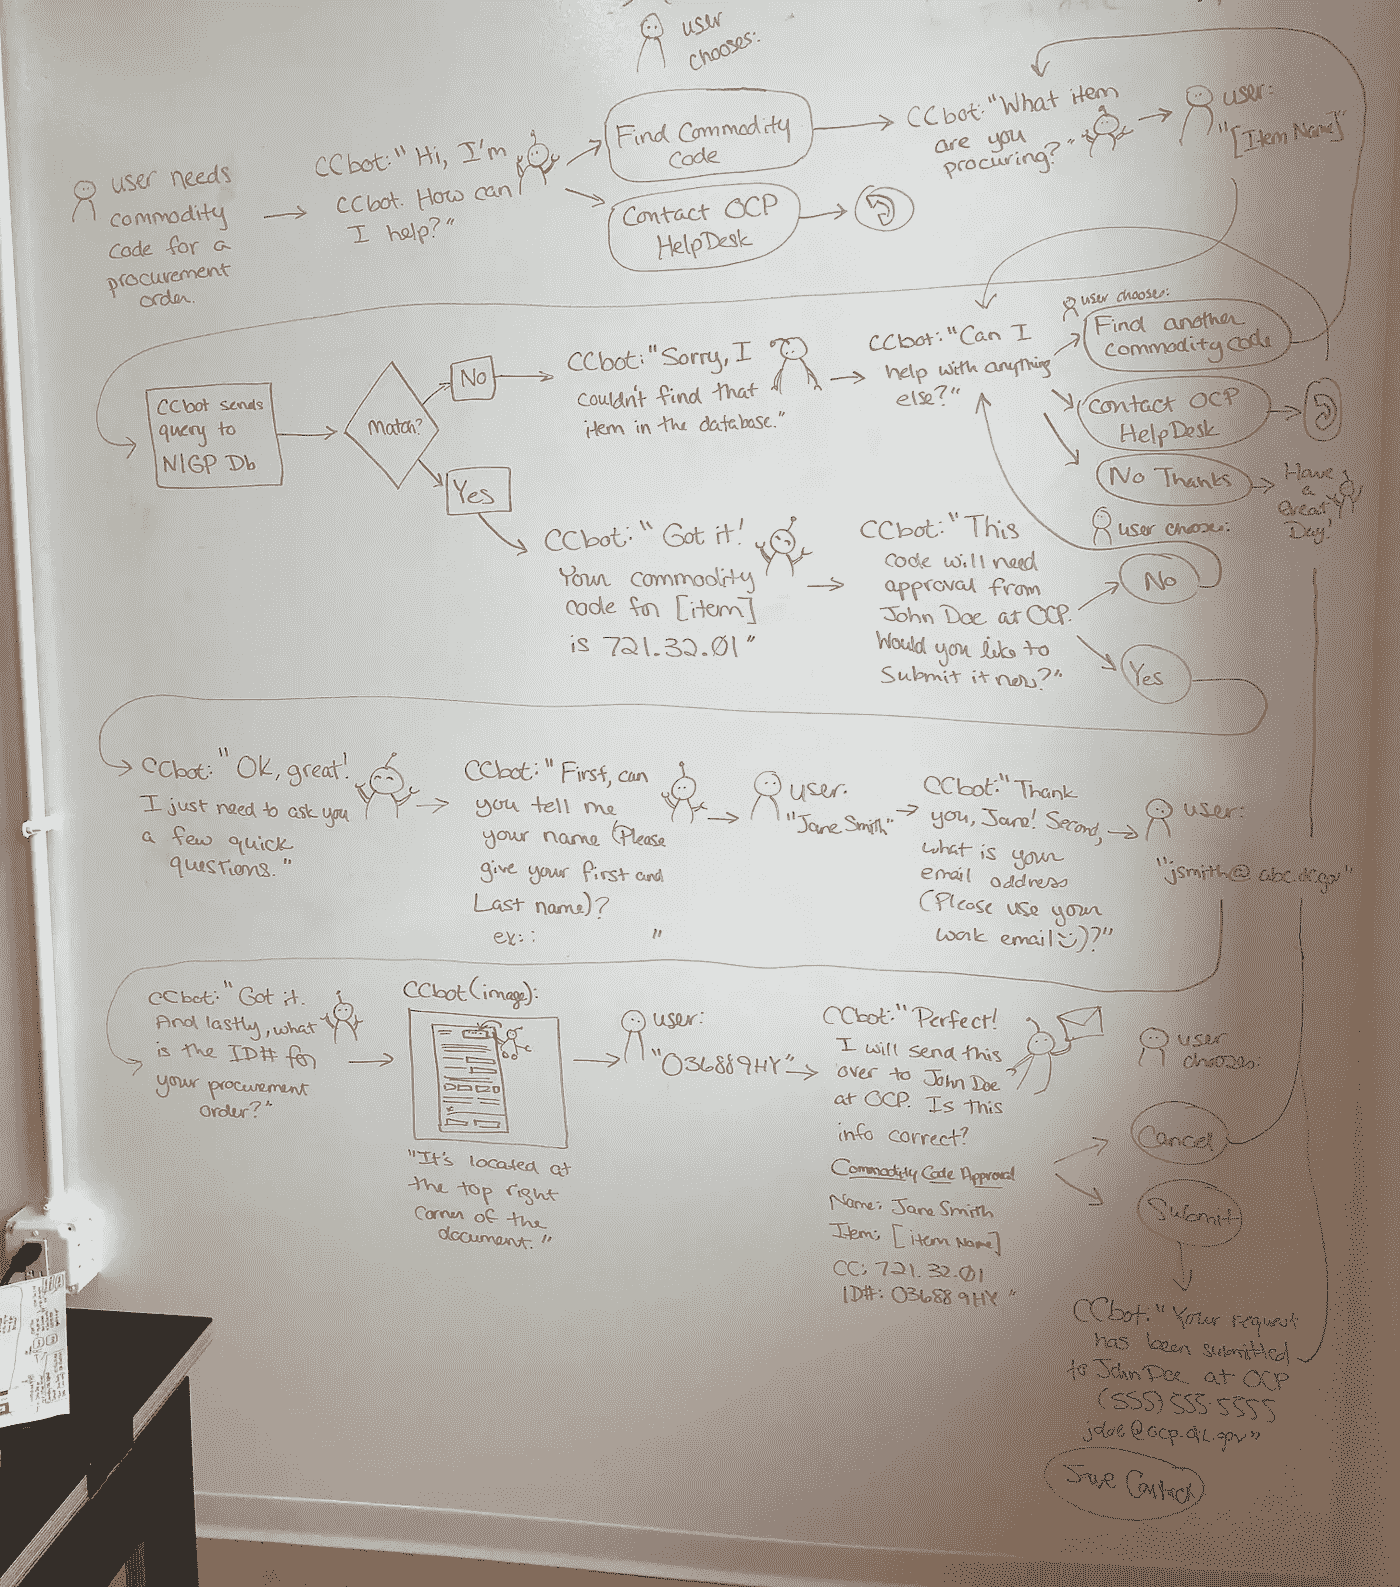 user
chooses:
user needs
commodity
code for a
procurement
order.
CCbot: "Hi, I'm
CCbot. How can
I help?"
Find Commodity
Code
Contact OCP
HelpDesk
CCbot: "What item
are you
procuring?"
user:
"[Item Name]"
CCbot sends
query to
NIGP Db
Match?
No
Yes
CCbot: "Sorry, I
couldn't find that
item in the database."
CCbot: "Can I
help with anything
else?"
user chooses:
Find another
commodity code
Contact OCP
HelpDesk
No Thanks
Have
a
Great
Day!
CCbot: "Got it!
Your commodity
code for [item]
is 721.32.01"
CCbot: "This
code will need
approval from
John Doe at OCP.
Would you like to
Submit it now?"
user chooses:
No
Yes
CCbot: "OK, great!
I just need to ask you
a few quick
questions."
CCbot: "First, can
you tell me
your name (Please
give your first and
Last name)?
ex.: "
user:
"Jane Smith"
CCbot: "Thank
you, Jane! Second,
what is your
email address
(Please use your
work email)?"
user:
"jsmith@abc.dc.gov"
CCbot: "Got it.
And lastly, what
is the ID# for
your procurement
order?"
CCbot (image):
"It's located at
the top right
corner of the
document."
user:
"036889HY"
CCbot: "Perfect!
I will send this
over to John Doe
at OCP. Is this
info correct?
Commodity Code Approval
Name: Jane Smith
Item: [item Name]
CC: 721.32.01
ID#: 036889HY"
user
chooses:
Cancel
Submit
CCbot: "Your request
has been submitted
to John Doe at OCP
(555) 555-5555
jdoe@ocp.dc.gov"
Save Contact